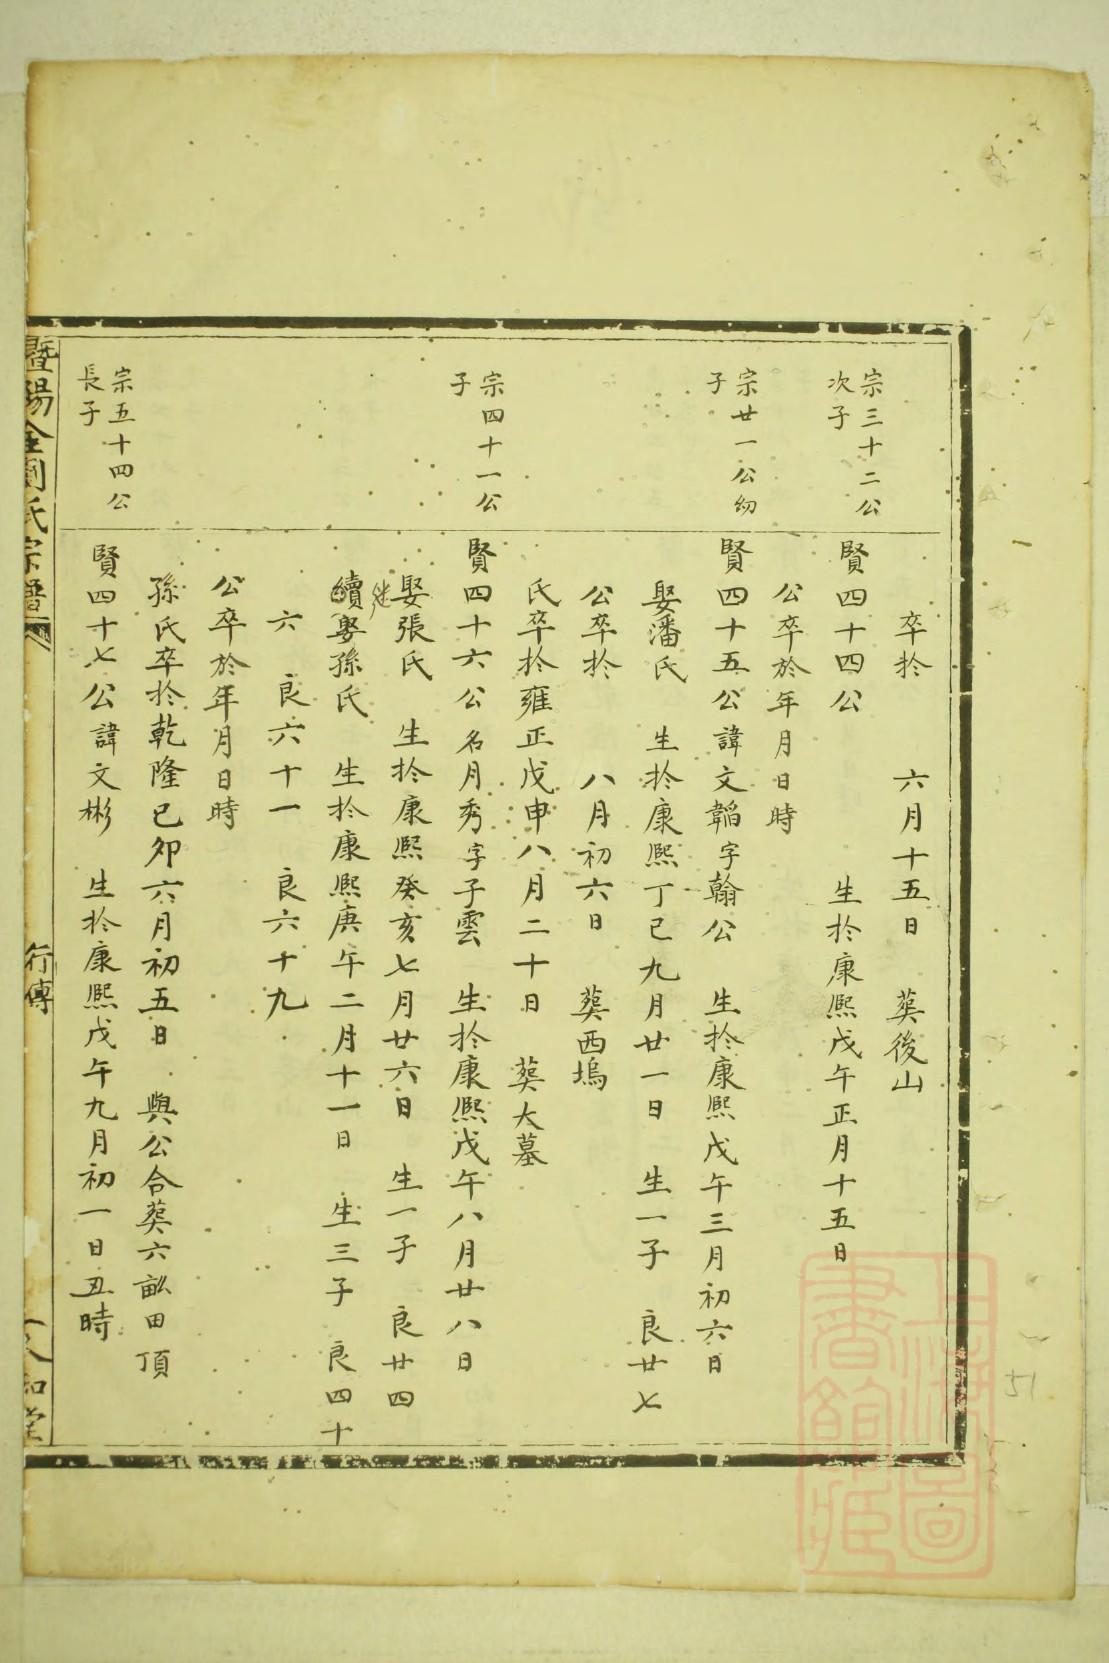 卒於　六月十五日　葬後山
宗三十二公
次子
賢四十四公　生於康熙戊午正月十五日
公卒於年月日時
宗廿一公幼
子
賢四十五公諱文韜字翰公　生於康熙戊午三月初六日
娶潘氏　生於康熙丁巳九月廿一日　生一子　良廿七
公卒於　八月初六日　葬西塢
氏卒於雍正戊申八月二十日　葬大墓
宗四十一公
子
賢四十六公名月秀字子雲　生於康熙戊午八月廿八日
娶張氏　生於康熙癸亥七月廿六日　生一子　良廿四
續娶孫氏　生於康熙庚午二月十一日　生三子　良四十
六　良六十一　良六十九
公卒於年月日時
孫氏卒於乾隆己卯六月初五日　與公合葬六畝田頂
宗五十四公
長子
賢四十七公諱文彬　生於康熙戊午九月初一日丑時
暨陽　氏宗譜
行傳
和堂
上海圖書館藏
51